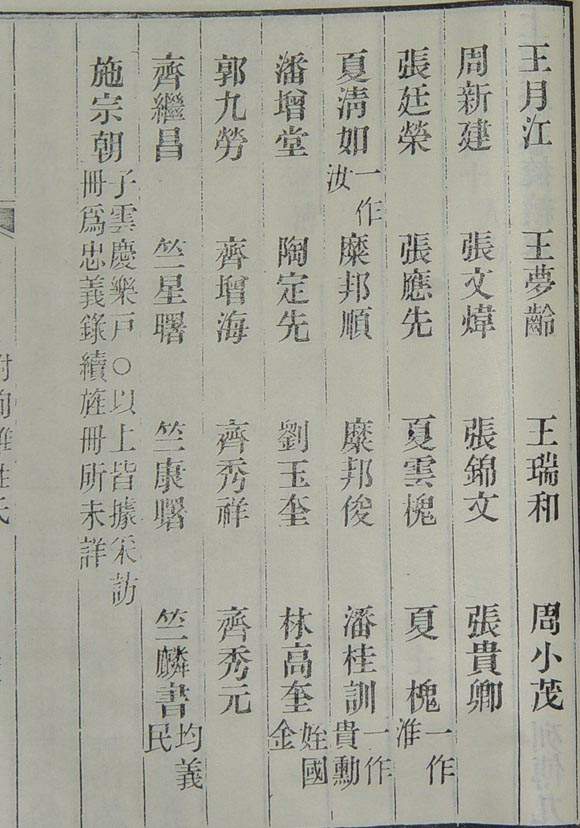 王月江 王夢齡 王瑞和 周小茂
周新建 張文煒 張錦文 張貴卿
張廷榮 張應先 夏雲槐 夏槐一作淮
夏清如一作汝 糜邦順 糜邦俊 潘桂訓一作貴勳
潘增堂 陶定先 劉玉奎 林高奎姪國金
郭九勞 齊增海 齊秀祥 齊秀元
齊繼昌 竺星曙 竺康曙 竺麟書均義民
施宗朝子雲慶樂戸○以上皆據采訪冊爲忠義錄續旌冊所未詳